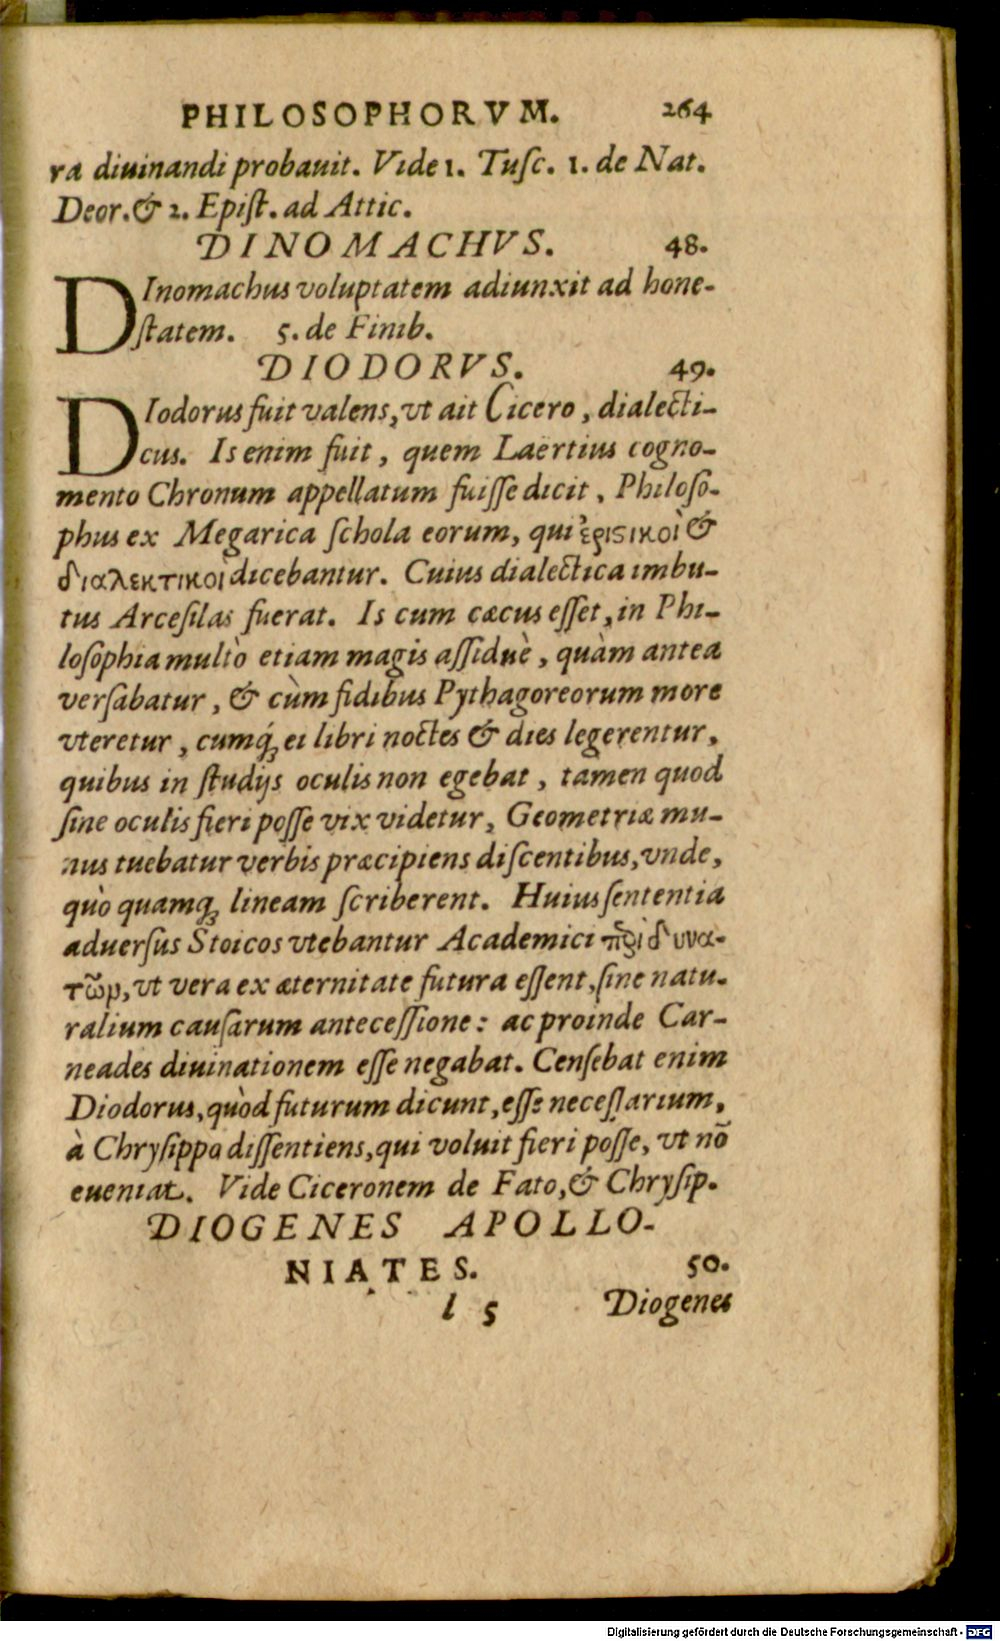 PHILOSOPHORVM. 264
ra diuinandi probauit. Vide 1. Tuſc. 1. de Nat.
Deor. & 2. Epiſt. ad Attic.
DINOMACHVS. 48.
DInomachus voluptatem adiunxit ad hone-
ſtatem. 5. de Finib.
DIODORVS. 49.
DIodorus fuit valens, vt ait Cicero, dialecti-
cus. Is enim fuit, quem Laërtius cogno-
mento Chronum appellatum fuiſſe dicit, Philoſo-
phus ex Megarica ſchola eorum, qui ἐριστικοὶ &
διαλεκτικοὶ dicebantur. Cuius dialectica imbu-
tus Arceſilas fuerat. Is cum cæcus eſſet, in Phi-
loſophia multò etiam magis aſſiduè, quàm antea
verſabatur, & cùm fidibus Pythagoreorum more
vteretur, cumq́ꝫ ei libri noctes & dies legerentur,
quibus in ſtudijs oculis non egebat, tamen quod
ſine oculis fieri poſſe vix videtur, Geometriæ mu-
nus tuebatur verbis præcipiens diſcentibus, vnde,
quò quamqꝫ lineam ſcriberent. Huius ſententia
aduerſus Stoicos vtebantur Academici πε̃ρὶ δυνα-
τῶν, vt vera ex æternitate futura eſſent, ſine natu-
ralium cauſarum anteceſſione: ac proinde Car-
neades diuinationem eſſe negabat. Cenſebat enim
Diodorus, quòd futurum dicunt, eſſe neceſſarium,
à Chryſippo diſſentiens, qui voluit fieri poſſe, vt nō
eueniat. Vide Ciceronem de Fato, & Chryſip.
DIOGENES APOLLO-
NIATES. 50.
l 5 Diogenes
Digitalisierung gefördert durch die Deutsche Forschungsgemeinschaft - DFG